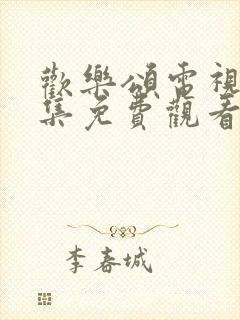 歡樂頌電視
集免費觀看
李春城